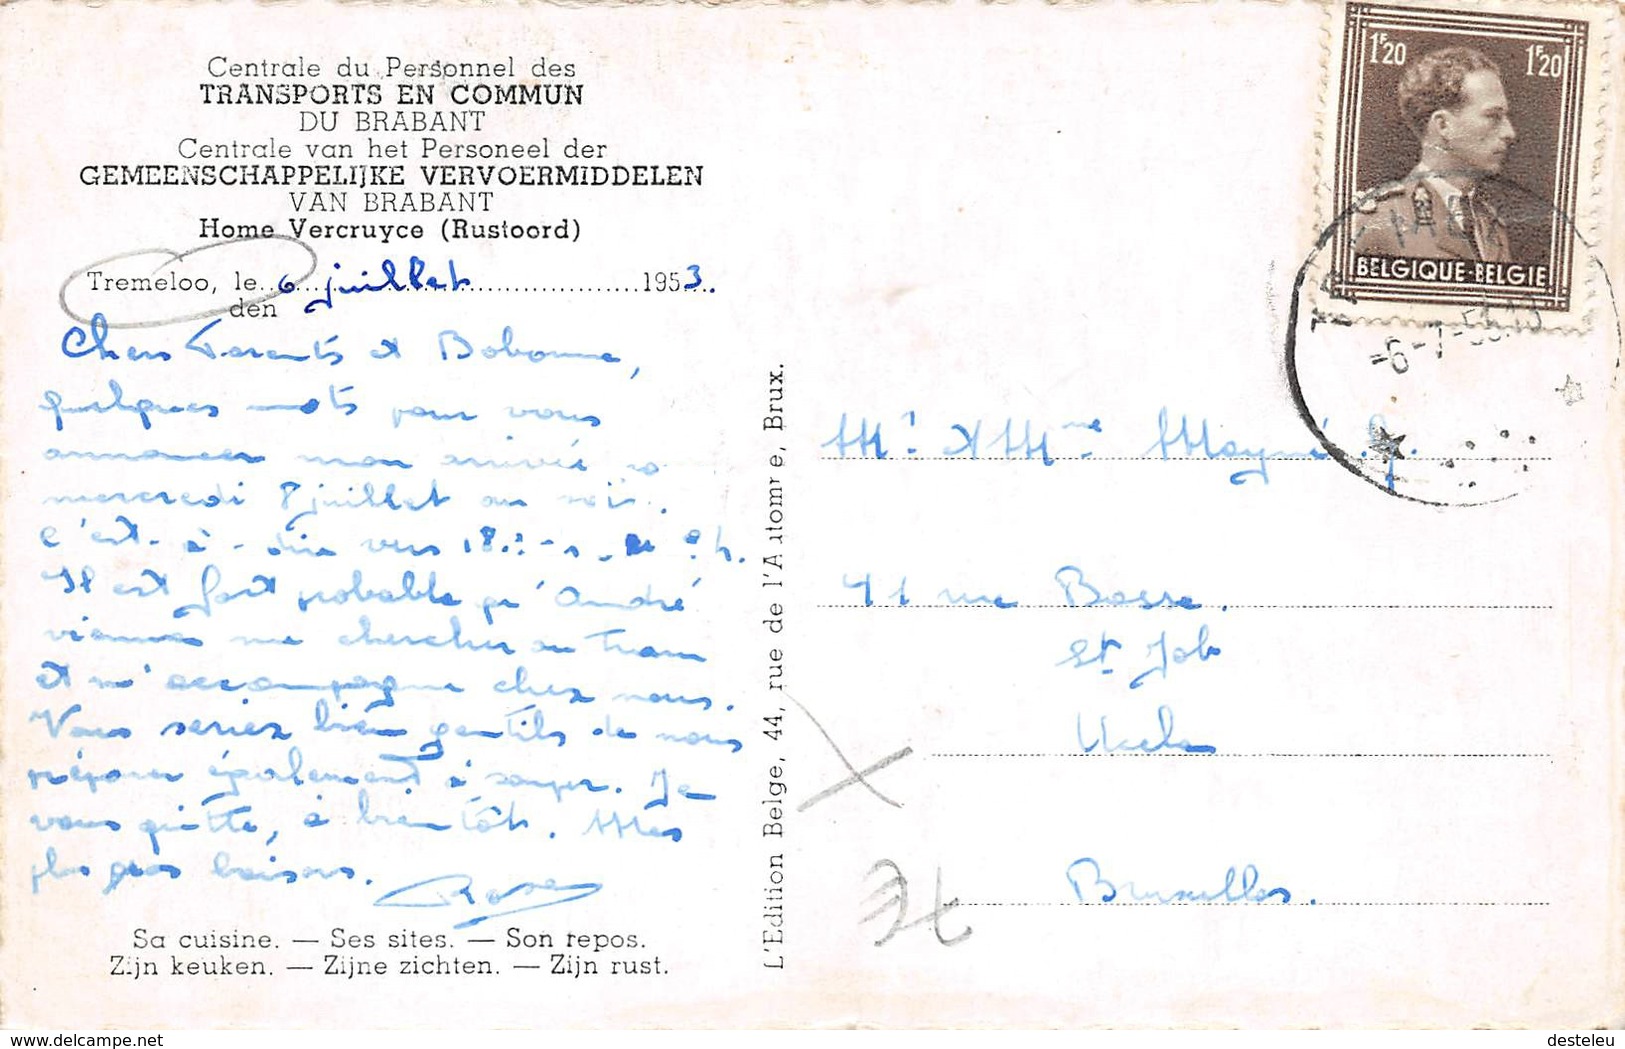 Centrale du Personnel des
TRANSPORTS EN COMMUN
DU BRABANT
Centrale van het Personeel der
GEMEENSCHAPPELIJKE VERVOERMIDDELEN
VAN BRABANT
Home Vercruyce (Rustoord)
Tremeloo, le 6 juillet 1953.
den
Chers Parents et Bobonne,
quelques mots pour vous
annoncer mon arrivée
mercredi 8 juillet au soir.
c'est-à-dire vers h.
Il est fort probable qu'André
vienne me chercher au tram
et m'accompagne chez nous.
Vous seriez bien gentils de nous
préparer également à souper. Je
vous quitte, à bientôt. Mes
plus gros baisers.
Rose
Sa cuisine. — Ses sites. — Son repos.
Zijn keuken. — Zijne zichten. — Zijn rust.
L'Edition Belge, 44, rue de l'Automne, Brux.
1F20 1F20
BELGIQUE-BELGIE
-6-7-53
Mr et Mme J.
41 rue Basse.
St Job
Uccle
Bruxelles.
www.delcampe.net
desteleu